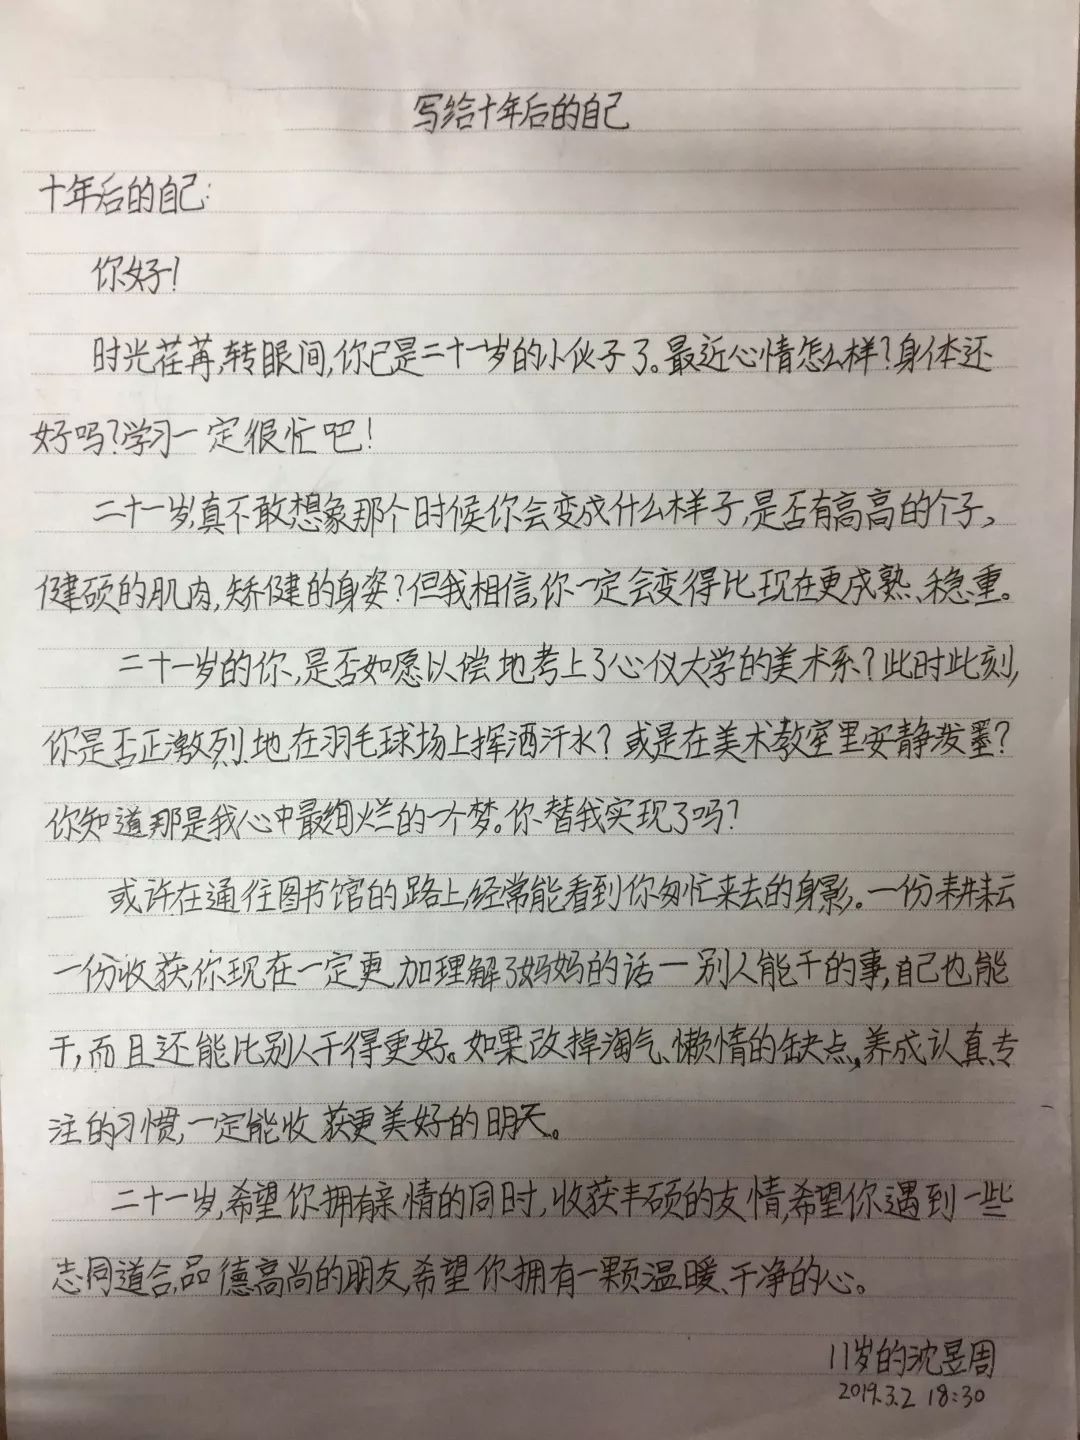 写给十年后的自己
十年后的自己:
你好!
时光荏苒,转眼间,你已是二十一岁的小伙子了。最近心情怎么样?身体还
好吗?学习一定很忙吧!
二十一岁,真不敢想象那个时候你会变成什么样子,是否有高高的个子、
健硕的肌肉,矫健的身姿?但我相信,你一定会变得比现在更成熟、稳重。
二十一岁的你,是否如愿以偿地考上了心仪大学的美术系?此时此刻,
你是否正激烈地在羽毛球场上挥洒汗水?或是在美术教室里安静泼墨?
你知道那是我心中最绚烂的一个梦。你替我实现了吗?
或许在通往图书馆的路上,经常能看到你匆忙来去的身影。一份耕耘
一份收获,你现在一定更加理解了妈妈的话一别人能干的事,自己也能
干,而且还能比别人干得更好。如果改掉淘气、懒惰的缺点,养成认真、专
注的习惯,一定能收获更美好的明天。
二十一岁,希望你拥有亲情的同时,收获丰硕的友情,希望你遇到一些
志同道合,品德高尚的朋友,希望你拥有一颗温暖、干净的心。
11岁的沈昱周
2019.3.2 18:30